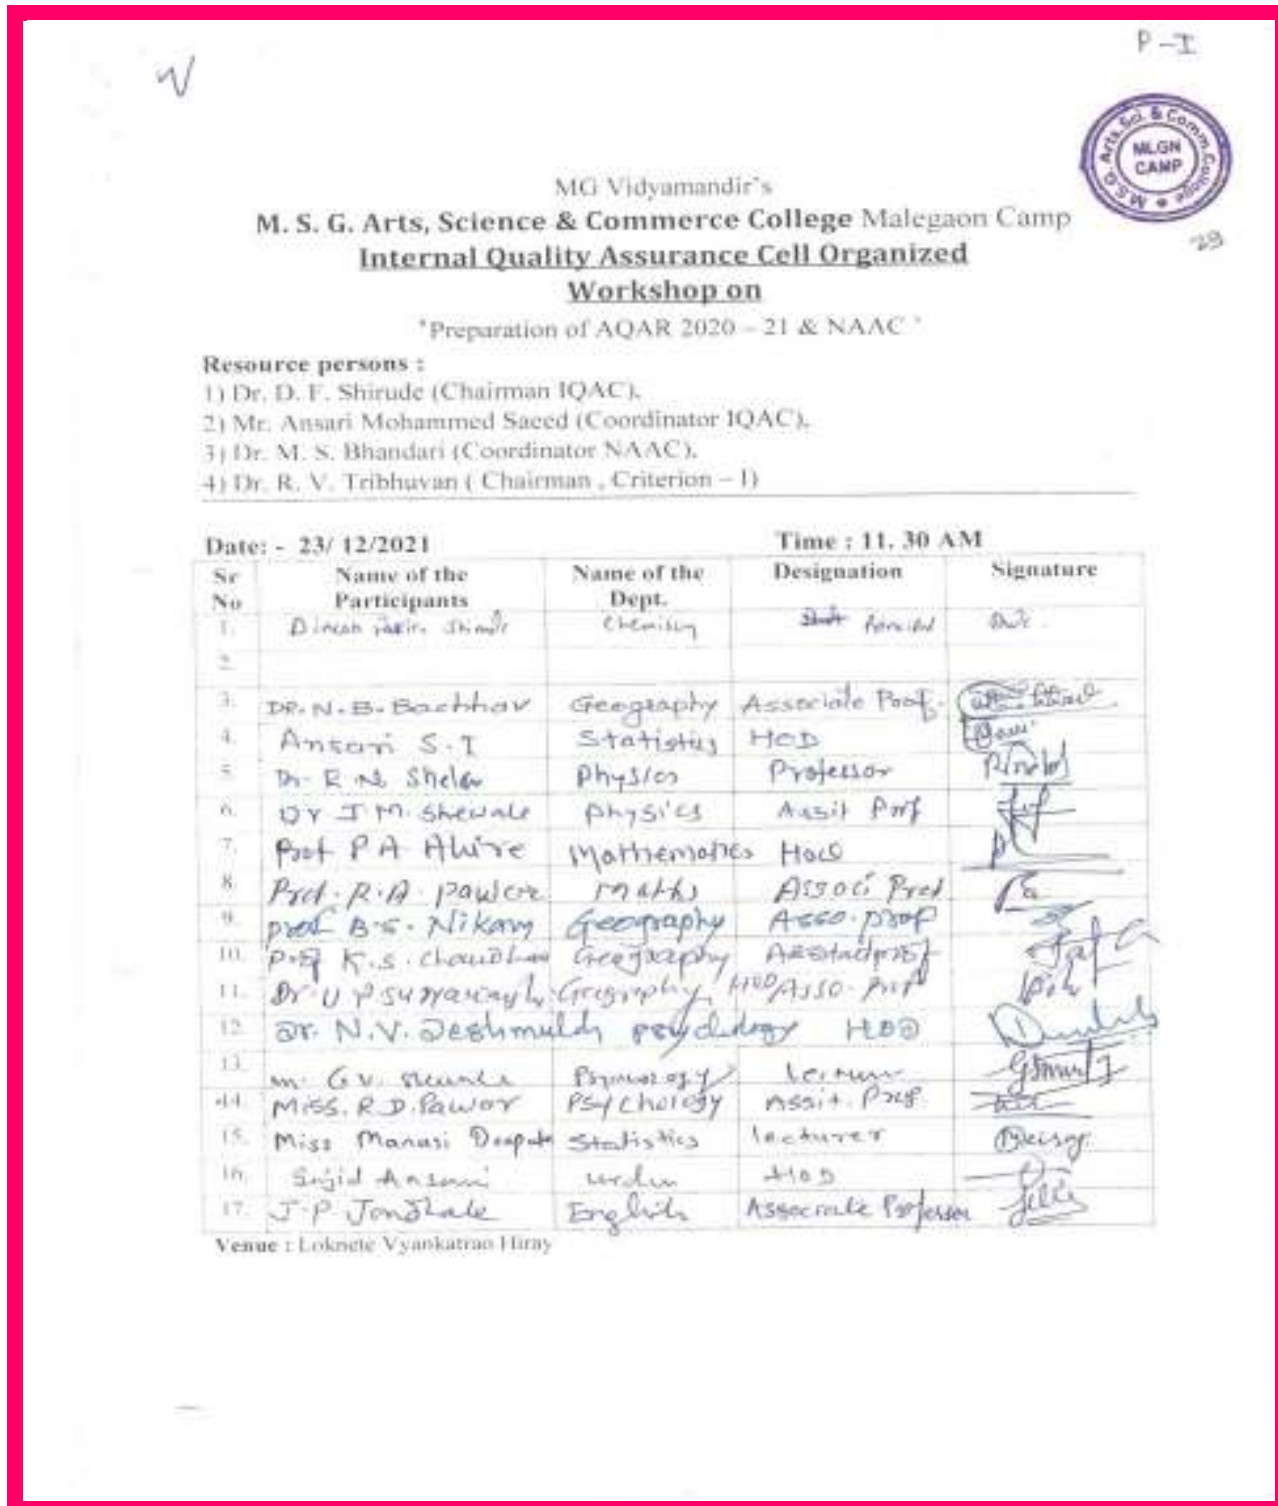 P-I
M.S.G. Arts, Sci. & Comm. College
MLGN
CAMP
29
MG Vidyamandir's
M. S. G. Arts, Science & Commerce College Malegaon Camp
Internal Quality Assurance Cell Organized
Workshop on
"Preparation of AQAR 2020 – 21 & NAAC "
Resource persons :
1) Dr. D. F. Shirude (Chairman IQAC),
2) Mr. Ansari Mohammed Saeed (Coordinator IQAC),
3) Dr. M. S. Bhandari (Coordinator NAAC),
4) Dr. R. V. Tribhuvan ( Chairman , Criterion – I)
Date: - 23/ 12/2021 Time : 11. 30 AM
Sr No Name of the Participants Name of the Dept. Designation Signature
1. Chemistry
2.
3. DR. N. B. Bachhav Geography Associate Prof.
4. Ansari S. I Statistics HOD
5. Dr. R N Shelar Physics Professor
6. Dr J M. Shewale physics Assit Prof
7. Prof P A Ahire Mathematics Hod
8. Prof. R. A. Pawar Maths Associ Prof
9. prof B. S. Nikam Geography Asso. prof
10. Prof K. S. Chaudhari Geography
11. Dr. U P Geography, HOD Asso. Prof
12. Dr. N. V. Deshmukh psychology HOD
13. G. V.
14. Miss. R. D. Pawar Psychology Assit. Prof.
15. Miss Manasi Statistics lecturer
16. Sajid Ansari urdu HOD
17. J. P Jondhale English Associate Professor
Venue : Loknete Vyankatrao Hiray